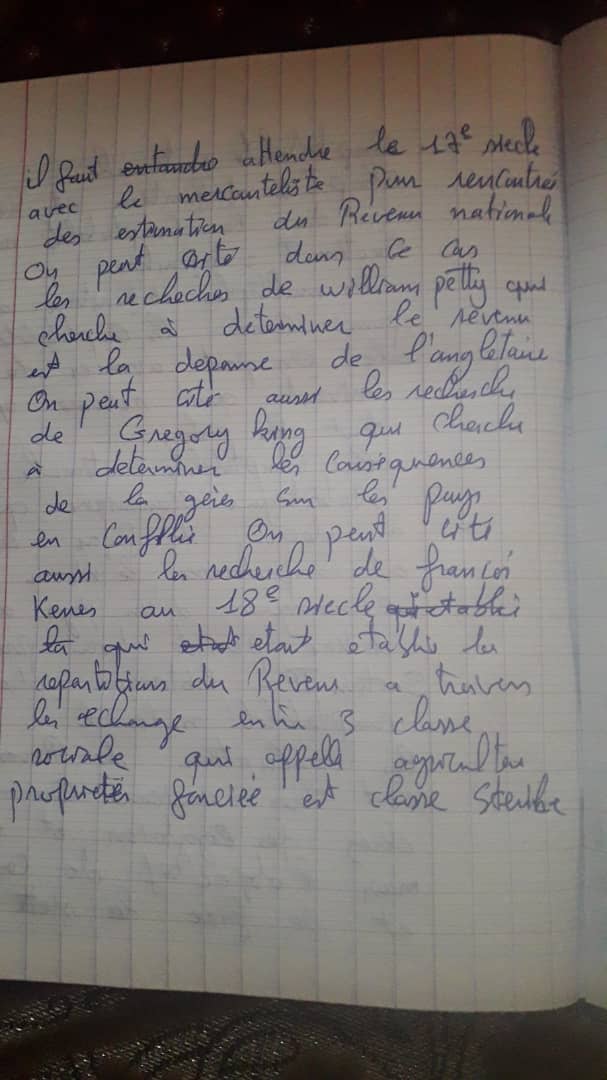 il faut entandre attendre le 17e siecle
avec le mercanteliste pour rencontrés
des estimation du Revenu national
On peut cité dans ce cas
les recheches de william petty qui
cherche à determiner le revenu
est la depanse de l'angletaire
On peut cité aussi les recherche
de Gregory king qui cherche
à determiner les Consequences
de la gères sur les pays
en Confflie On peut cité
aussi les recherche de françoi
Kenes au 18e siecle
la qui etait établie la
repartitions du Revenu a travers
les echange entre 3 classe
sociale qui appelle agriculteu
proprietés fonciée est classe Sterile